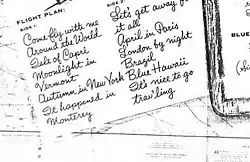 FLIGHT PLAN:
SIDE 1.
Come fly with me
Around the World
Isle of Capri
Moonlight in
Vermont
Autumn in New York
It happened in
Monterey
SIDE 2.
Let's get away
it all
April in Paris
London by night
Brazil
Blue Hawaii
It's nice to go
trav'ling
BLUE